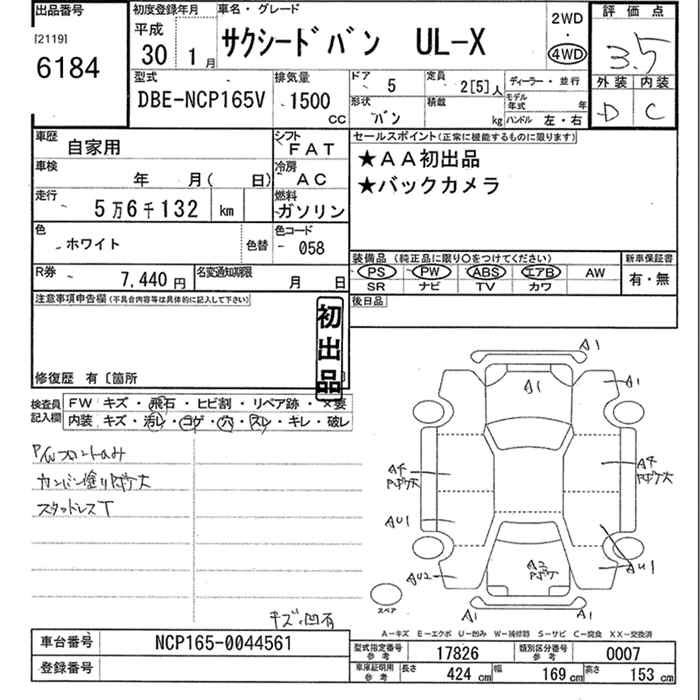 出品番号
[2119]
6184
初度登録年月
平成
30 1月
車名・グレード
サクシードバン UL-X
2WD
・
4WD
評価点
3.5
外装 内装
D C
型式
DBE-NCP165V
排気量
1500
cc
ドア 5
定員 2[5]人
ディーラー・並行
形状
バン
積載
kg
モデル年式 年
ハンドル 左・右
車歴
自家用
シフト
FAT
車検
年 月( 日)
冷房
AC
走行
5万6千132 km
燃料
ガソリン
色
ホワイト
色替
色コード
058
R券
7,440円
名変通知期限
月 日
セールスポイント(正常に機能するものに限ります)
★AA初出品
★バックカメラ
装備品 (純正品に限り○をつけてください)
PS PW ABS エアB AW
SR ナビ TV カワ
新車保証書
有・無
後日品
注意事項申告欄(不具合内容等は具体的に記入して下さい)
初出品
修復歴 有〔箇所
検査員
記入欄
FW キズ・飛石・ヒビ割・リペア跡・×要
内装 キズ・汚レ・コゲ・穴・スレ・キレ・破レ
P/Wフロントのみ
カンバン塗りボケ大
スタッドレスT
キズ・凹有
A1
A1
A1
A4
ボケ大
A4
ボケ大
AU1
AU2
A2
ボケ
AU1
A1
スペア
A-キズ E-エクボ U-凹み W-補修跡 S-サビ C-腐食 XX-交換済
車台番号 NCP165-0044561
登録番号
型式指定番号
参考
17826
類別区分番号
参考
0007
車庫証明用
参考
長さ 424 cm
幅 169 cm
高さ 153 cm